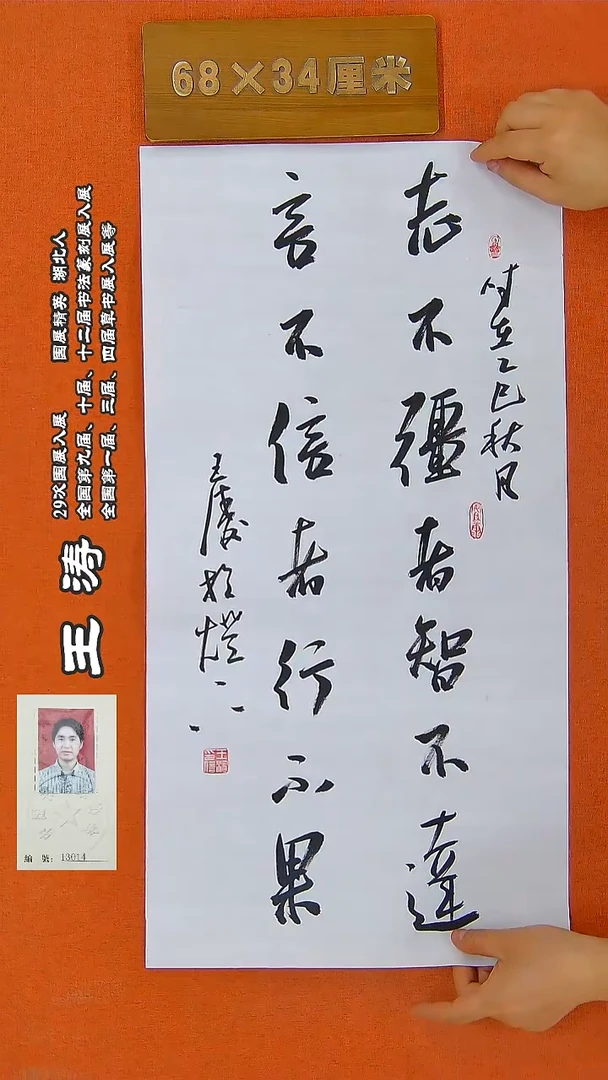 68×34厘米
时在乙巳秋月
志不彊者智不達
言不信者行不果
王涛於灯下
29次国展入展 国展精英 湖北人
全国第九届、十届、十二届书法篆刻展入展
全国第一届、三届、四届草书展入展等
王涛
編號：13014